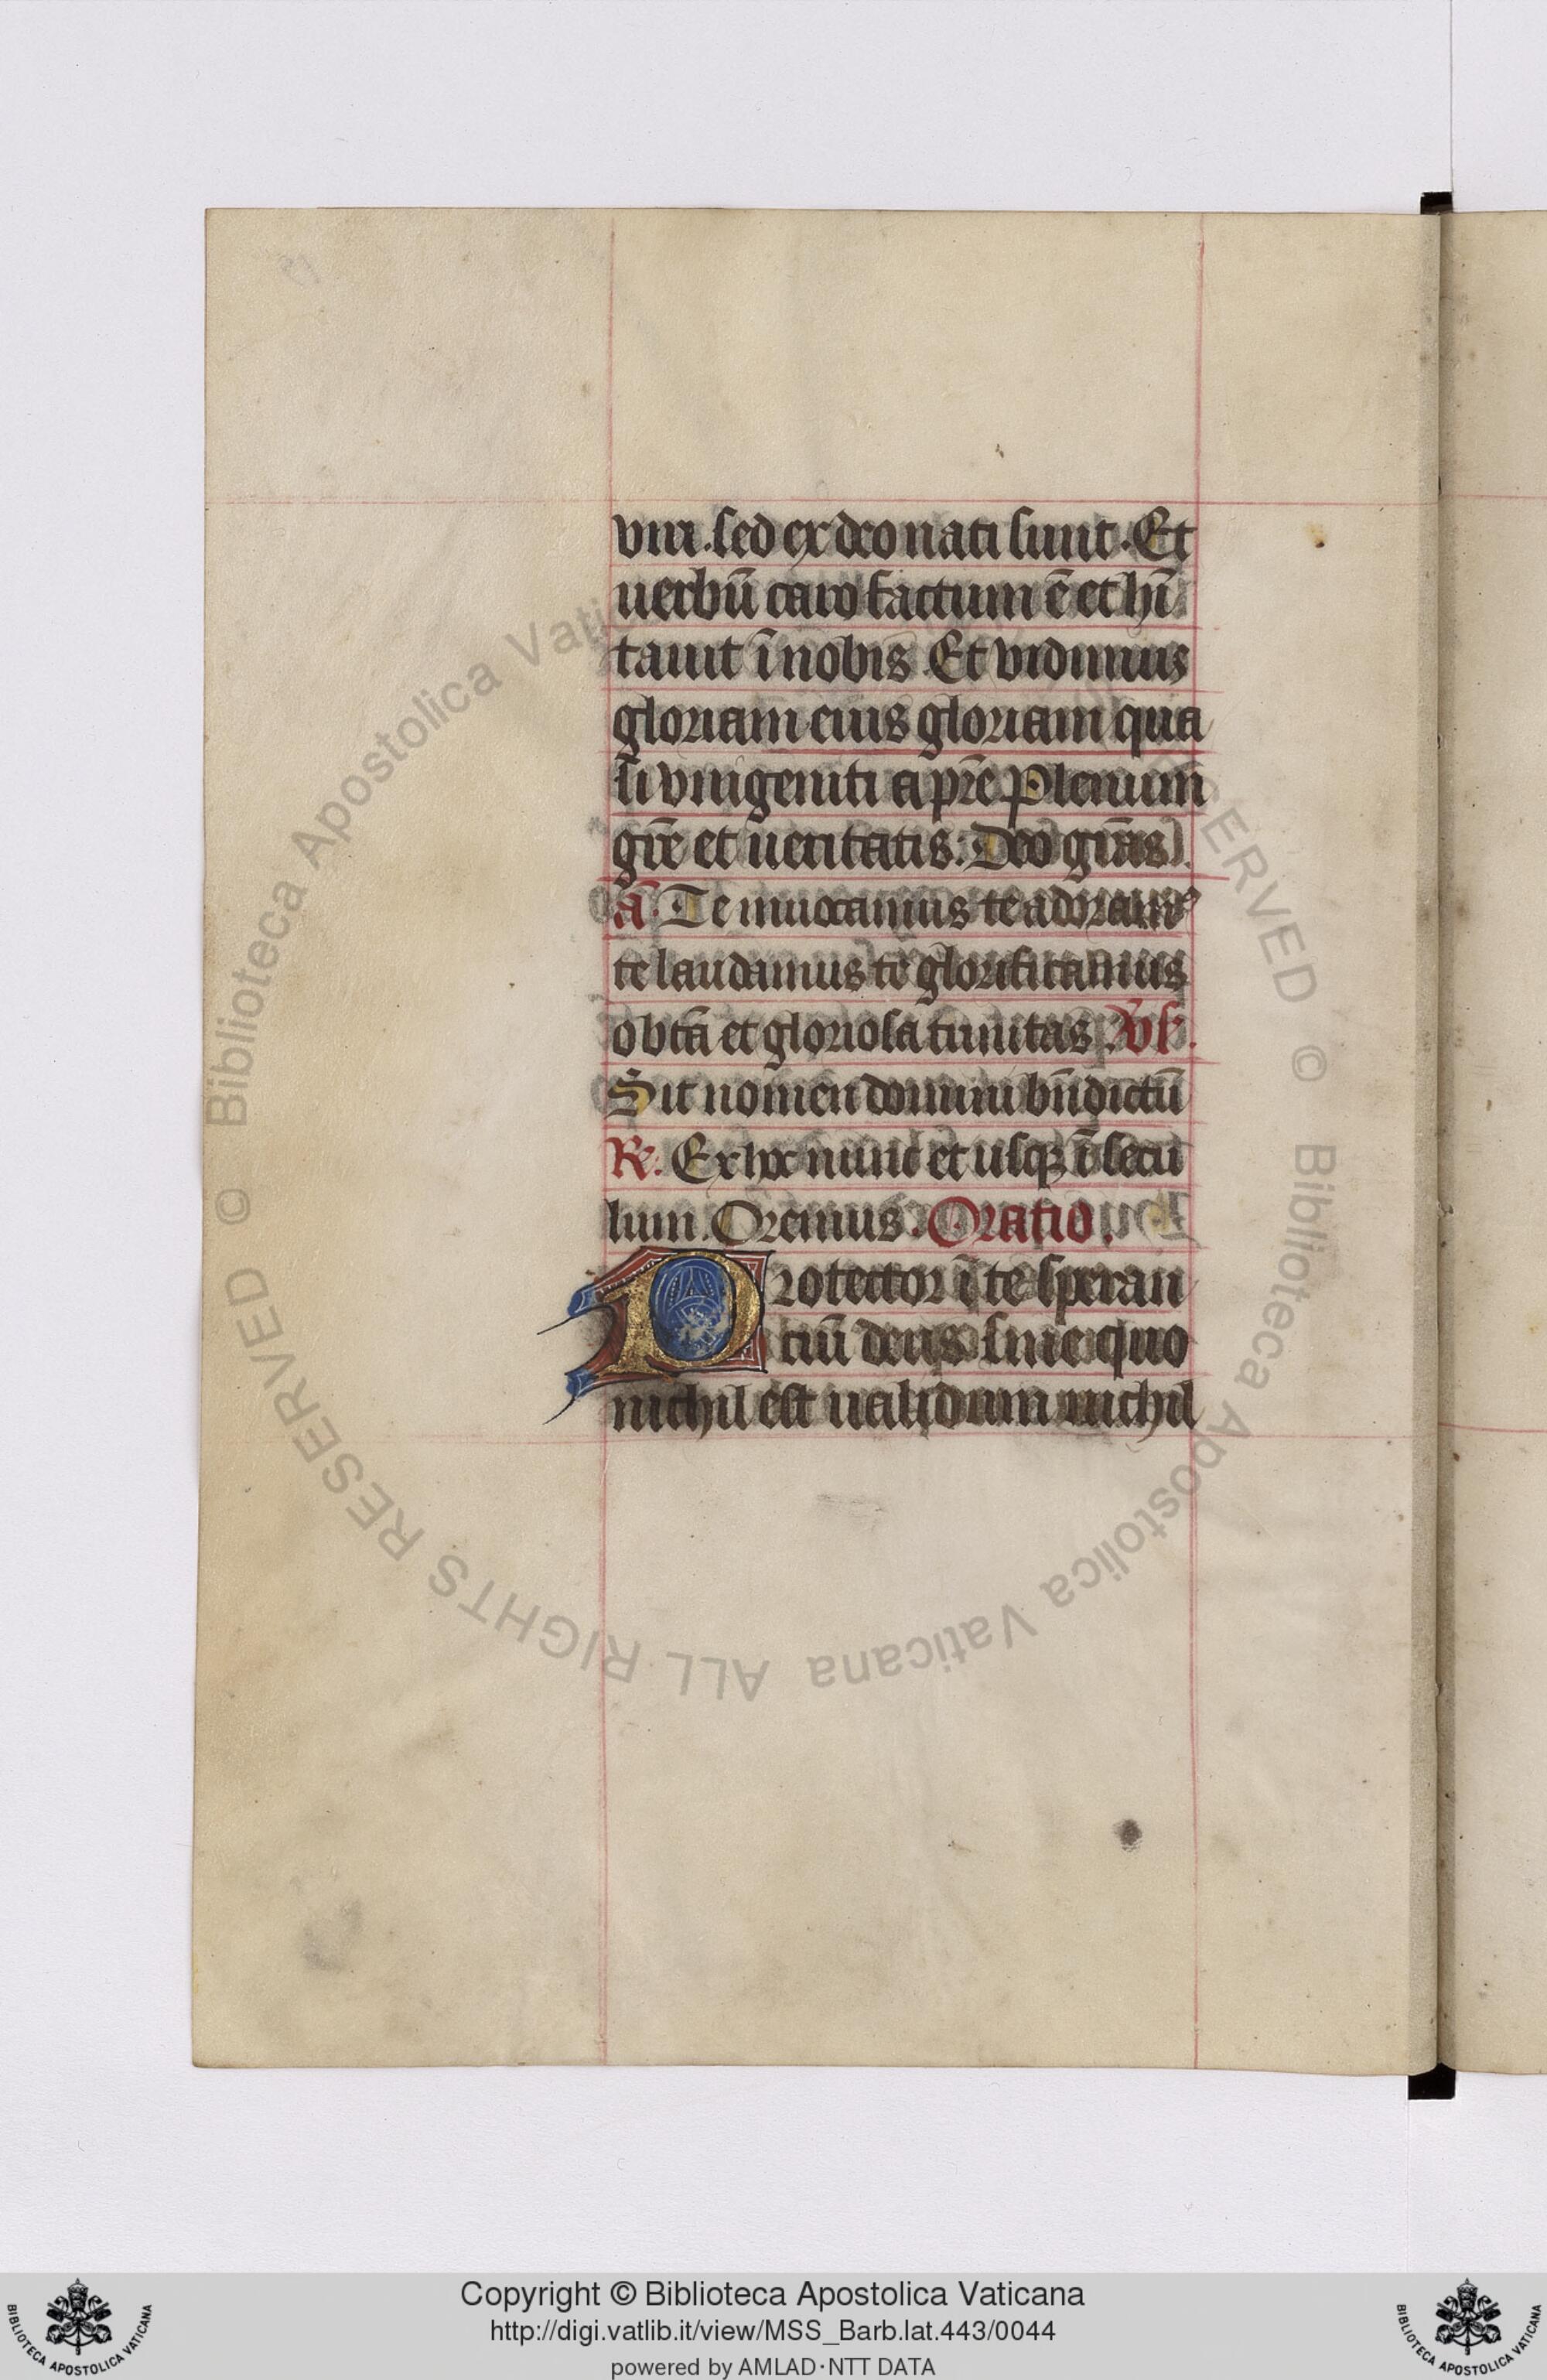 viri. sed ex deo nati sunt. Et
uerbū caro factum ē et hī
tauit ī nobis. Et vidimus
gloriam eius gloriam qua
si vnigeniti a pr̄e Plenum
gr̄e et ueritatis: Deo gr̄as
ā. Te inuocamus te adoramꝰ
te laudamus te glorificamus
o bt̄ā et gloriosa trinitas. Vs.
Sit nomen domini bn̄dictū
R. Ex hoc nunc et usqꝫ ī secu
lum. Oremus. Oratio.
Protector ī te speran
tiū deus sine quo
nichil est ualidum nichil
Biblioteca Apostolica Vaticana ALL RIGHTS RESERVED ©
Copyright © Biblioteca Apostolica Vaticana
http://digi.vatlib.it/view/MSS_Barb.lat.443/0044
powered by AMLAD·NTT DATA
BIBLIOTECA APOSTOLICA VATICANA
BIBLIOTECA APOSTOLICA VATICANA